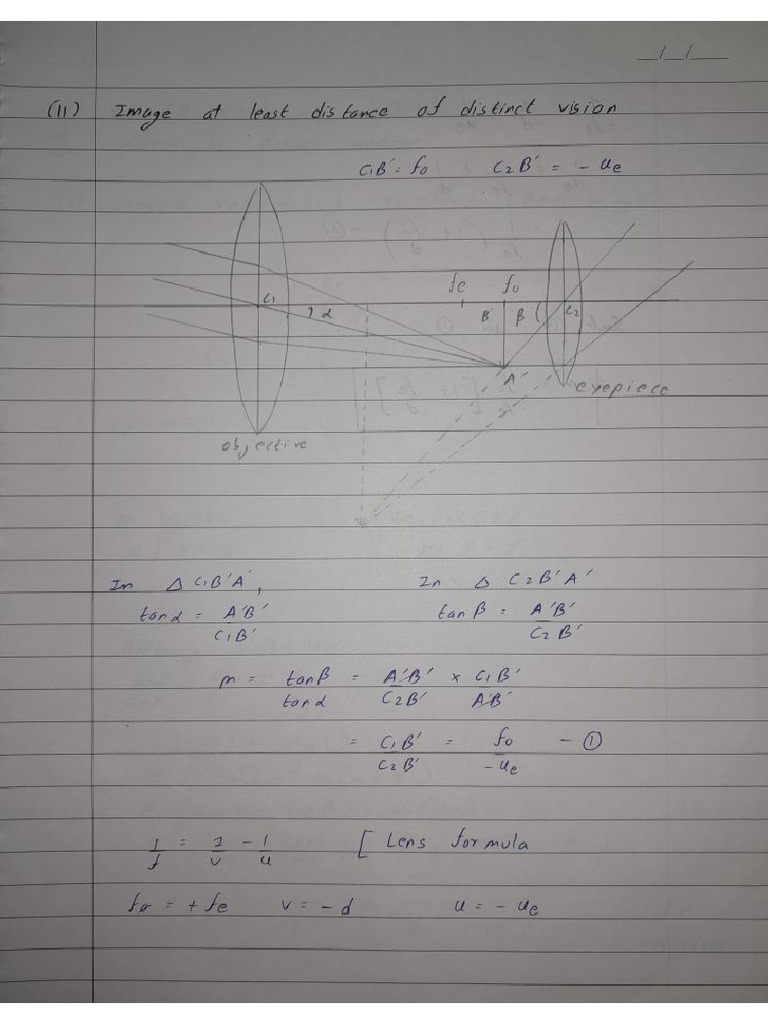 _/_/_
(11) Image at least distance of distinct vision
C1B' = fo C2B' = - ue
fe fo
C1 α B' β C2
A'
eyepiece
objective
In Δ C1B'A', In Δ C2B'A'
tanα = A'B'/C1B' tanβ = A'B'/C2B'
m = tanβ/tanα = A'B'/C2B' × C1B'/A'B'
= C1B'/C2B' = fo/-ue - ①
1/f = 1/v - 1/u [ Lens formula
fo = + fe v = - d u = - ue